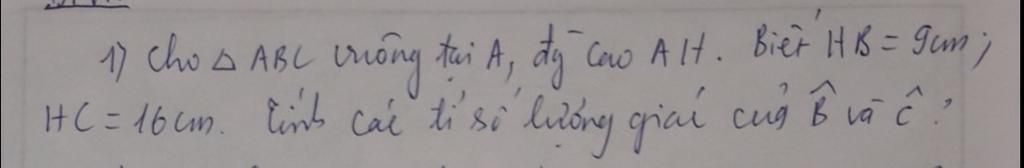 1) Cho △ ABC vuông tại A, đg cao AH. Biết HB = 9cm;
HC = 16cm. Tính các tỉ số lượng giác của B̂ và Ĉ ?